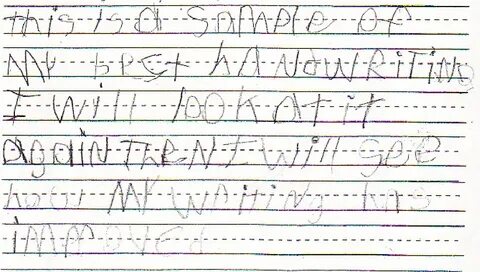 this is a sample of
My best handwriting
I will look at it
again then I will see
how my writing has
improved